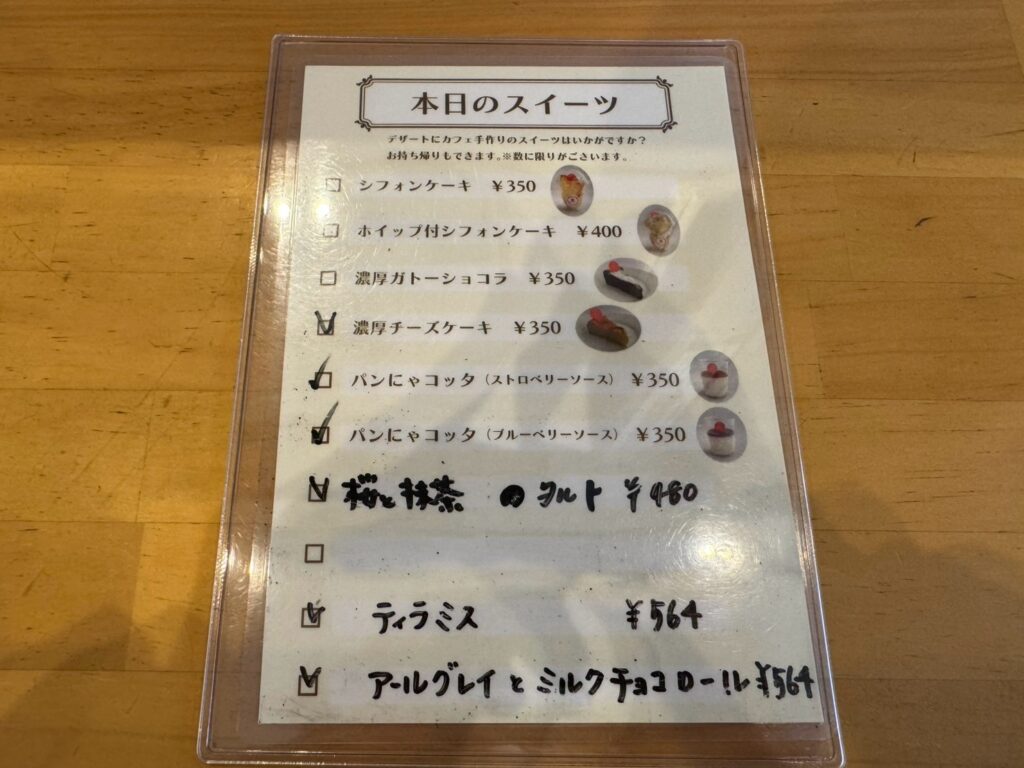 本日のスイーツ
デザートにカフェ手作りのスイーツはいかがですか?
お持ち帰りもできます。※数に限りがございます。
シフォンケーキ ¥350
ホイップ付シフォンケーキ ¥400
濃厚ガトーショコラ ¥350
濃厚チーズケーキ ¥350
パンにゃコッタ(ストロベリーソース) ¥350
パンにゃコッタ(ブルーベリーソース) ¥350
桜と抹茶 の タルト ¥480
ティラミス ¥564
アールグレイとミルクチョコロール ¥564